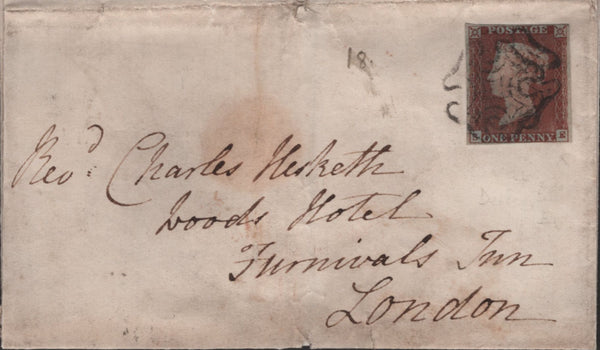 POSTAGE
18
ONE PENNY
Revd Charles Hesketh
Woods Hotel
Furnivals Inn
London